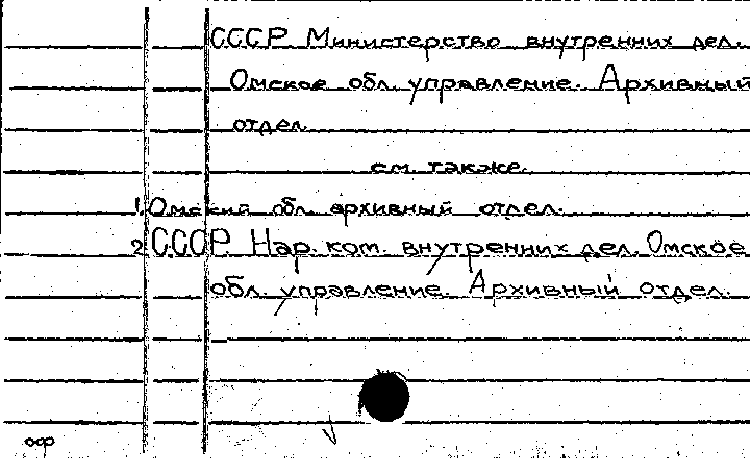 СССР Министерство внутренних дел.
Омское обл. управление. Архивный
отдел
см. также
1. Омский обл. архивный отдел.
2 СССР. Нар. ком. внутренних дел. Омское
обл. управление. Архивный отдел.